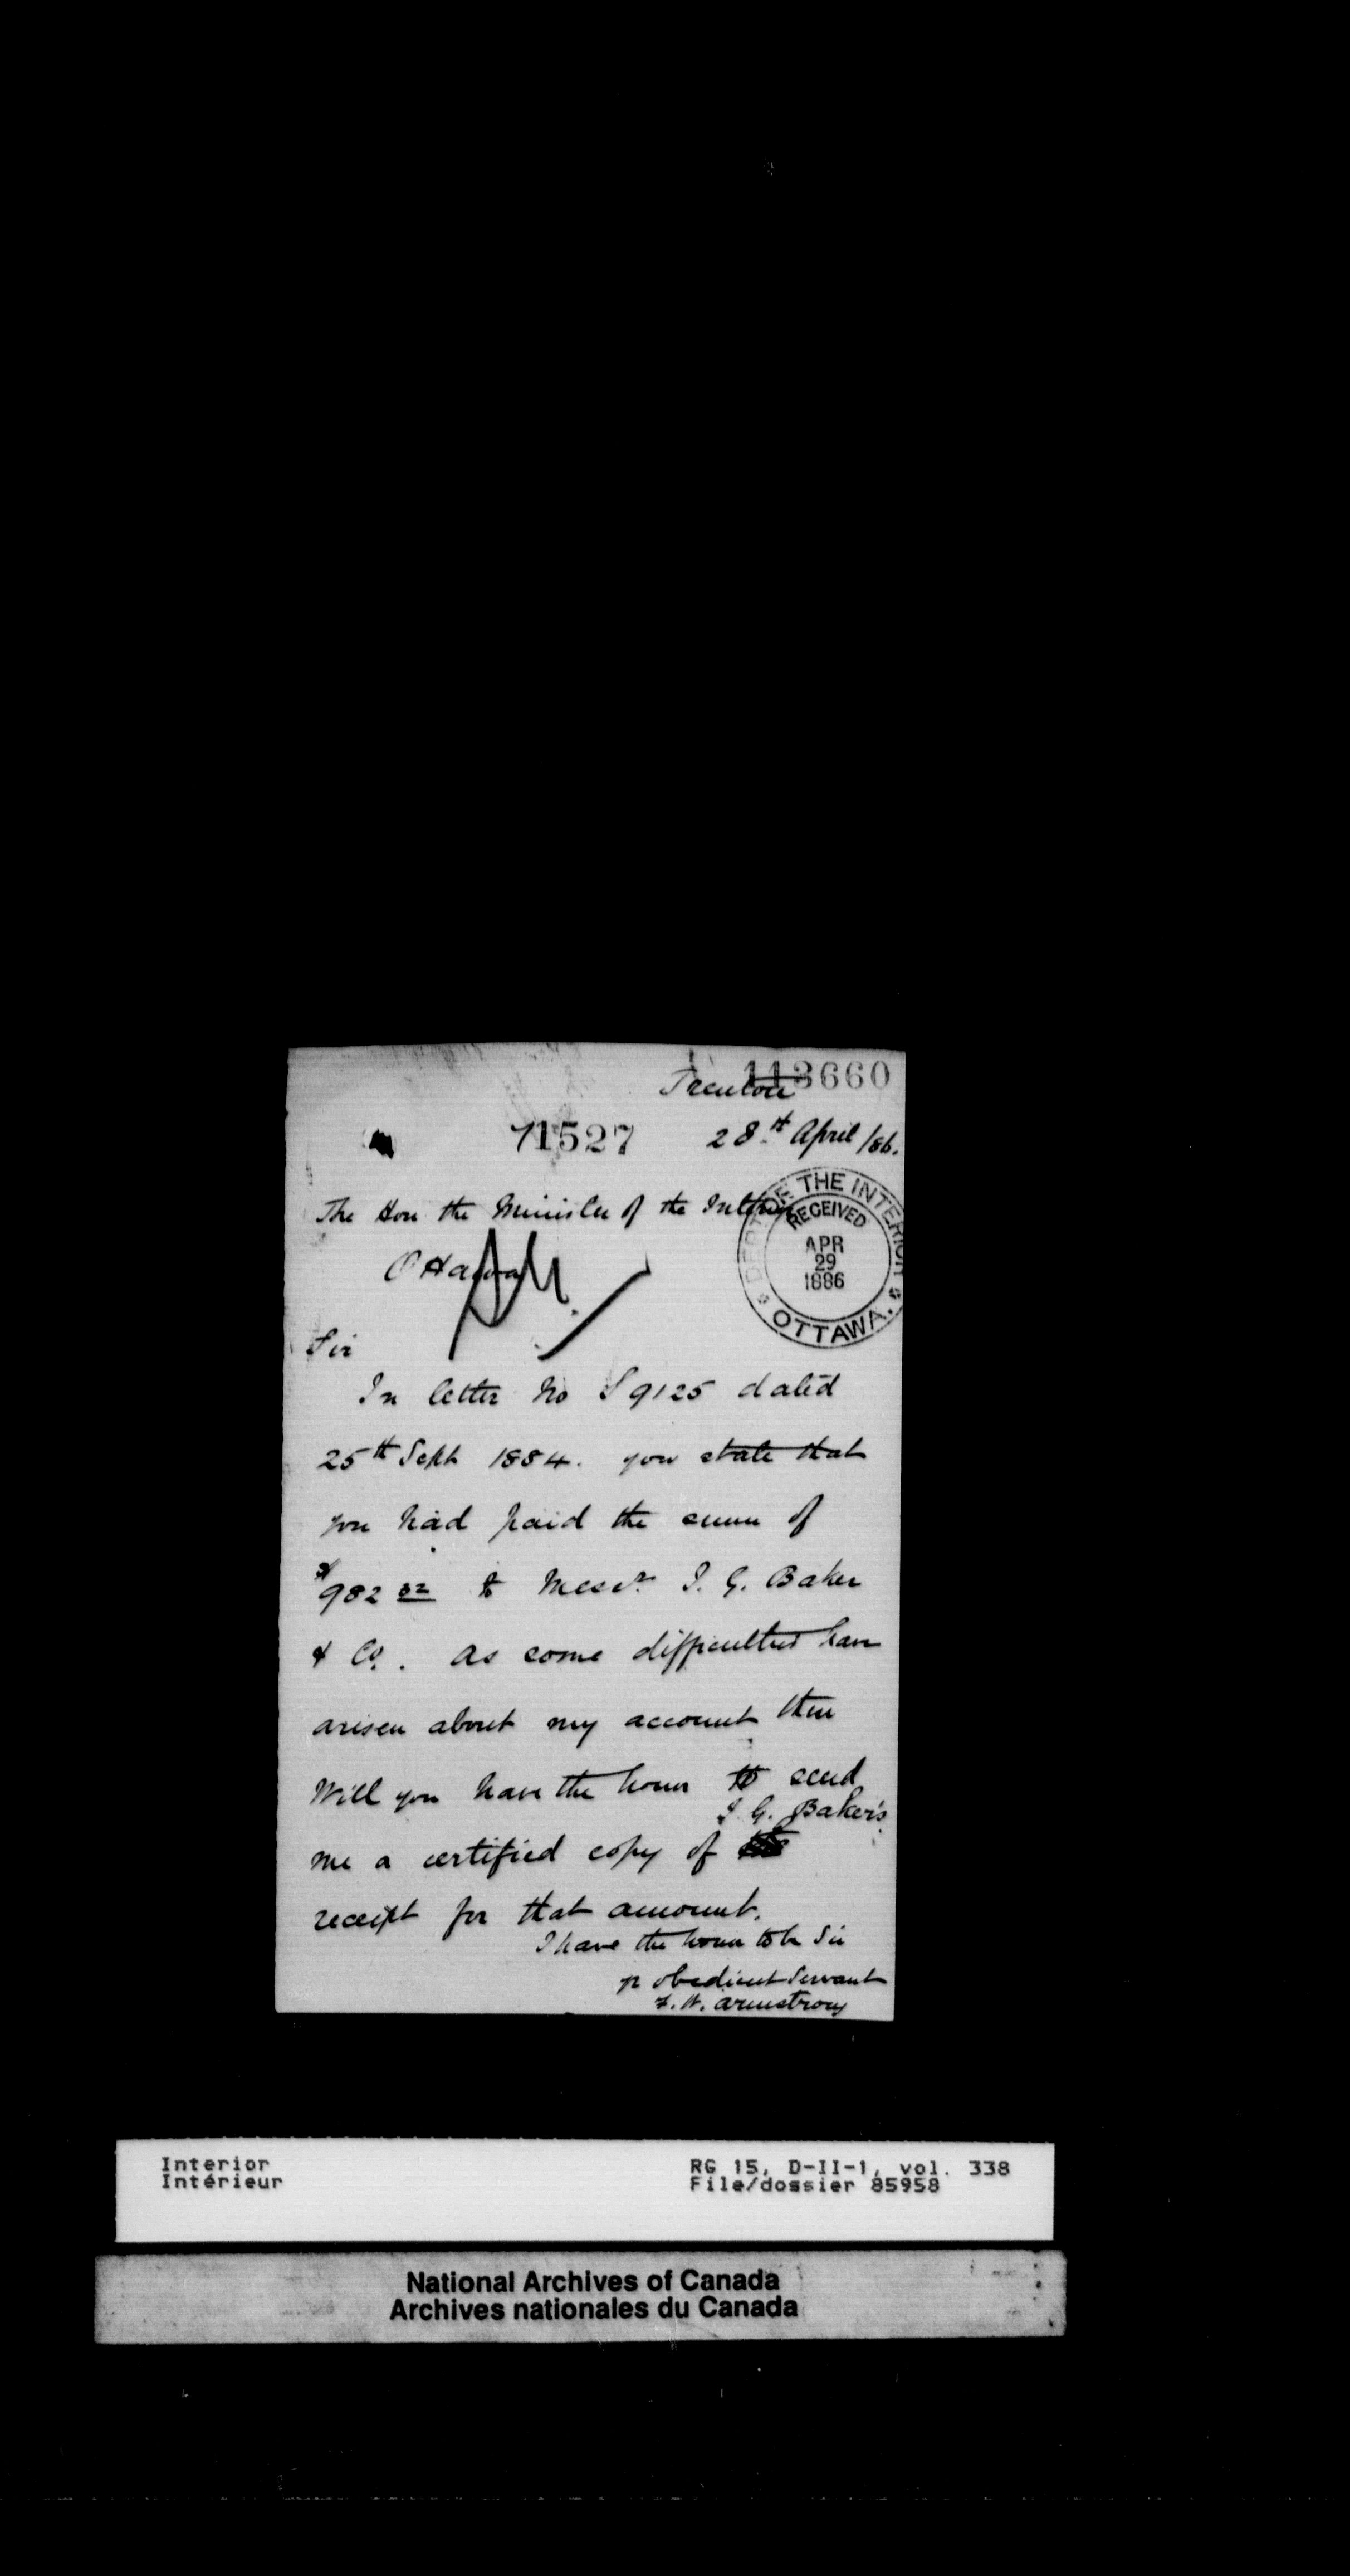 113660
Trenton
71527 28th April /86.
The Hon the Minister of the Interior
Ottawa
DEPT OF THE INTERIOR
RECEIVED
APR
29
1886
OTTAWA.
Sir
In letter No S 9125 dated
25th Sept 1884. you state that
you had paid the sum of
$982 32 to Messrs I. G. Baker
& Co. As some difficulties have
arisen about my account then
Will you have the honor to send
I. G. Baker's
me a certified copy of
receipt for that amount.
I have the honor to be Sir
yr obedient Servant
F. W. Armstrong
Interior
Intérieur
RG 15, D-II-1, vol. 338
File/dossier 85958
National Archives of Canada
Archives nationales du Canada